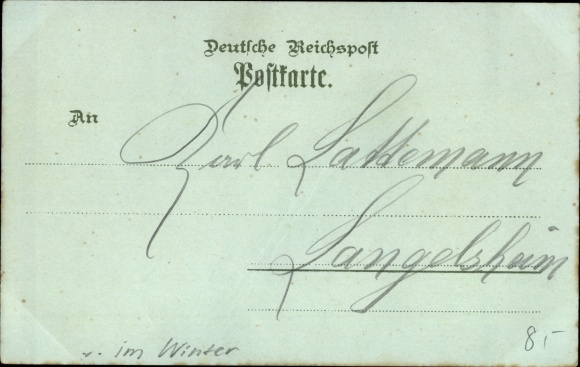 Deutsche Reichspost
Postkarte.
An
Karl Lattemann
Langelsheim
im Winter 8,-